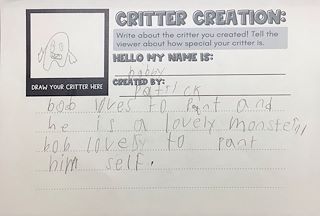 CRITTER CREATION:
Write about the critter you created! Tell the
viewer about how special your critter is.
HELLO MY NAME IS:
bobby
CREATED BY:
Patrick
DRAW YOUR CRITTER HERE
bob loves to pant and
he is a lovely monster
bob lovely to pant
him self.